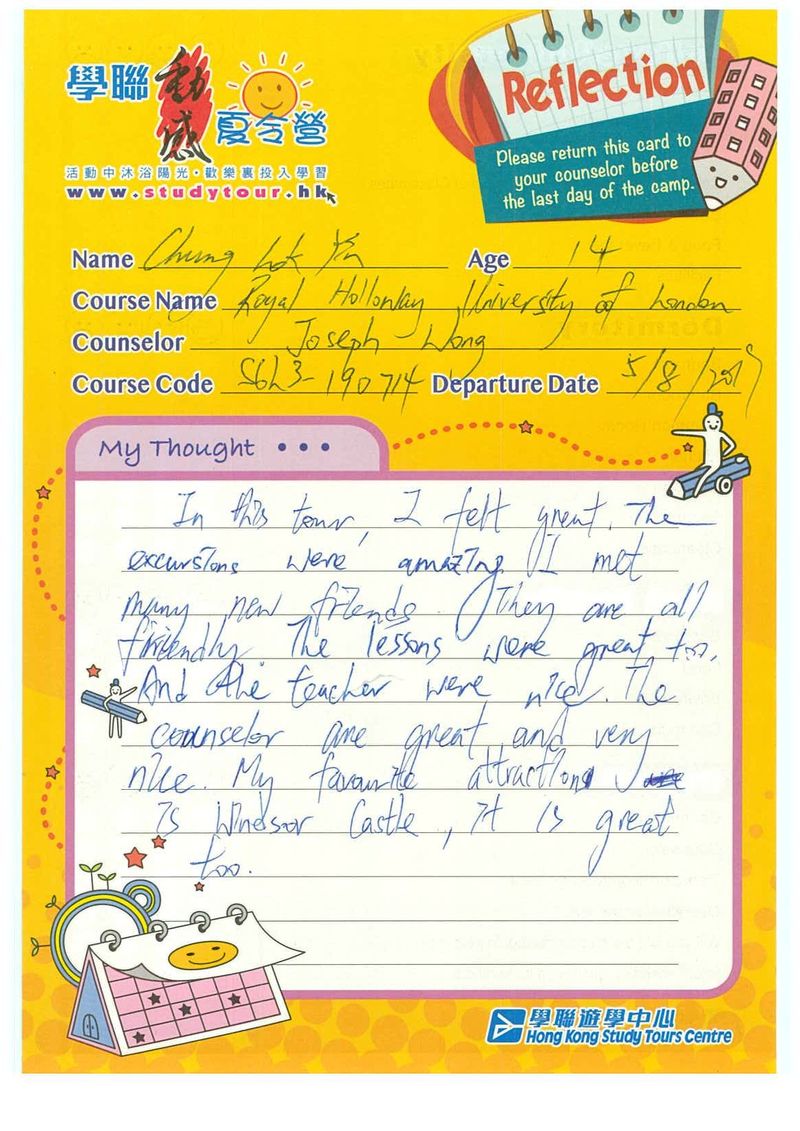 學聯 動感 夏令營
活動中沐浴陽光・歡樂裏投入學習
www.studytour.hk
Reflection
Please return this card to
your counselor before
the last day of the camp.
Name Chung Lok Yin Age 14
Course Name Royal Holloway University of London
Counselor Joseph Wong
Course Code SGL3-190714 Departure Date 5/8/2019
My Thought • • •
In this tour, I felt great. The
excursions were amazing. I met
many new friends. They are all
friendly. The lessons were great too.
And the teacher were nice. The
counselor are great and very
nice. My favourite attraction
is Windsor Castle, it is great
too.
學聯遊學中心
Hong Kong Study Tours Centre